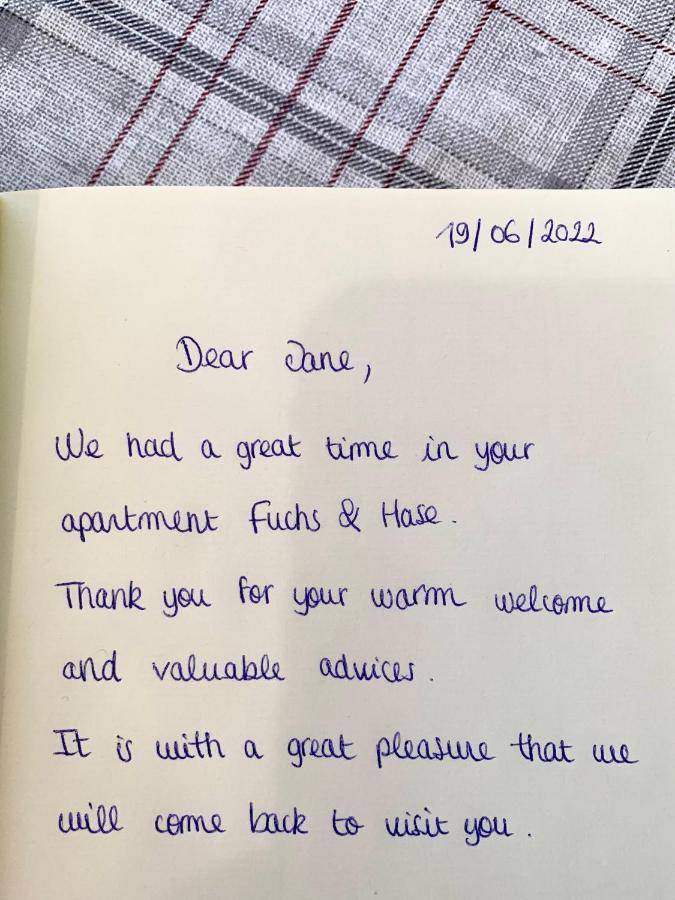 19/06/2022
Dear Jane,
We had a great time in your
apartment Fuchs & Hase.
Thank you for your warm welcome
and valuable advices.
It is with a great pleasure that we
will come back to visit you.